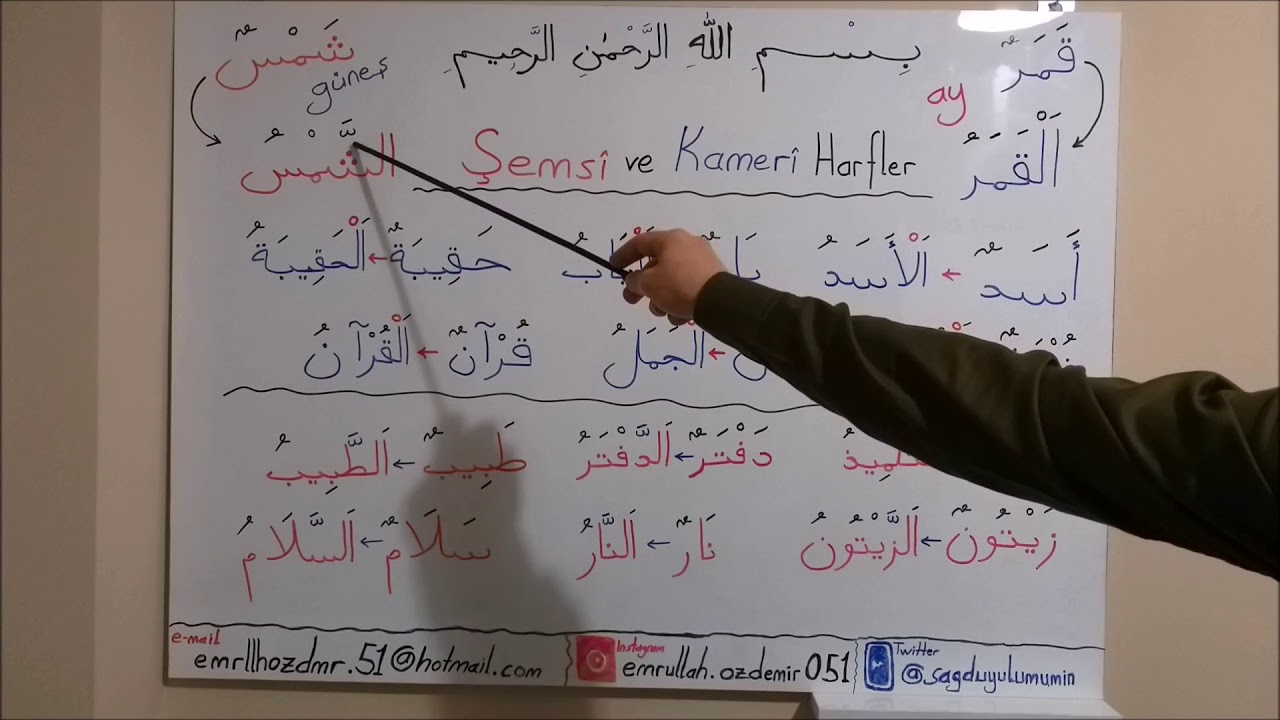 قَمَرٌ بِسْمِ اللّٰهِ الرَّحْمٰنِ الرَّحِيمِ شَمْسٌ
ay güneş
اَلْقَمَرُ Şemsî ve Kamerî Harfler الشَّمْسُ
أَسَدٌ ← اَلْأَسَدُ حَقِيبَةٌ ← اَلْحَقِيبَةُ
اَلْجَمَلُ قُرْآنٌ ← اَلْقُرْآنُ
دَفْتَرٌ ← اَلدَّفْتَرُ طَبِيبٌ ← اَلطَّبِيبُ
زَيْتُونٌ ← اَلزَّيْتُونُ نَارٌ ← اَلنَّارُ سَلَامٌ ← اَلسَّلَامُ
e-mail Instagram Twitter
emrllhozdmr.51@hotmail.com emrullah.ozdemir051 @sagduyulumumin